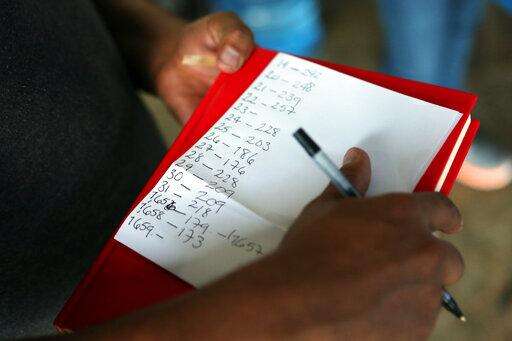 20 – 248
21 – 239
22 – 257
23 –
24 – 228
25 – 203
26 – 186
27 – 176
28 – 228
29 – 209
30 –
31 – 209
– 218
1658 – 179 – 1657
1659 – 173